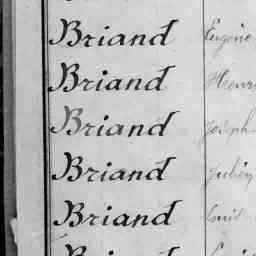 Briand Eugène
Briand Henri
Briand Joseph
Briand
Briand Louis
Briand